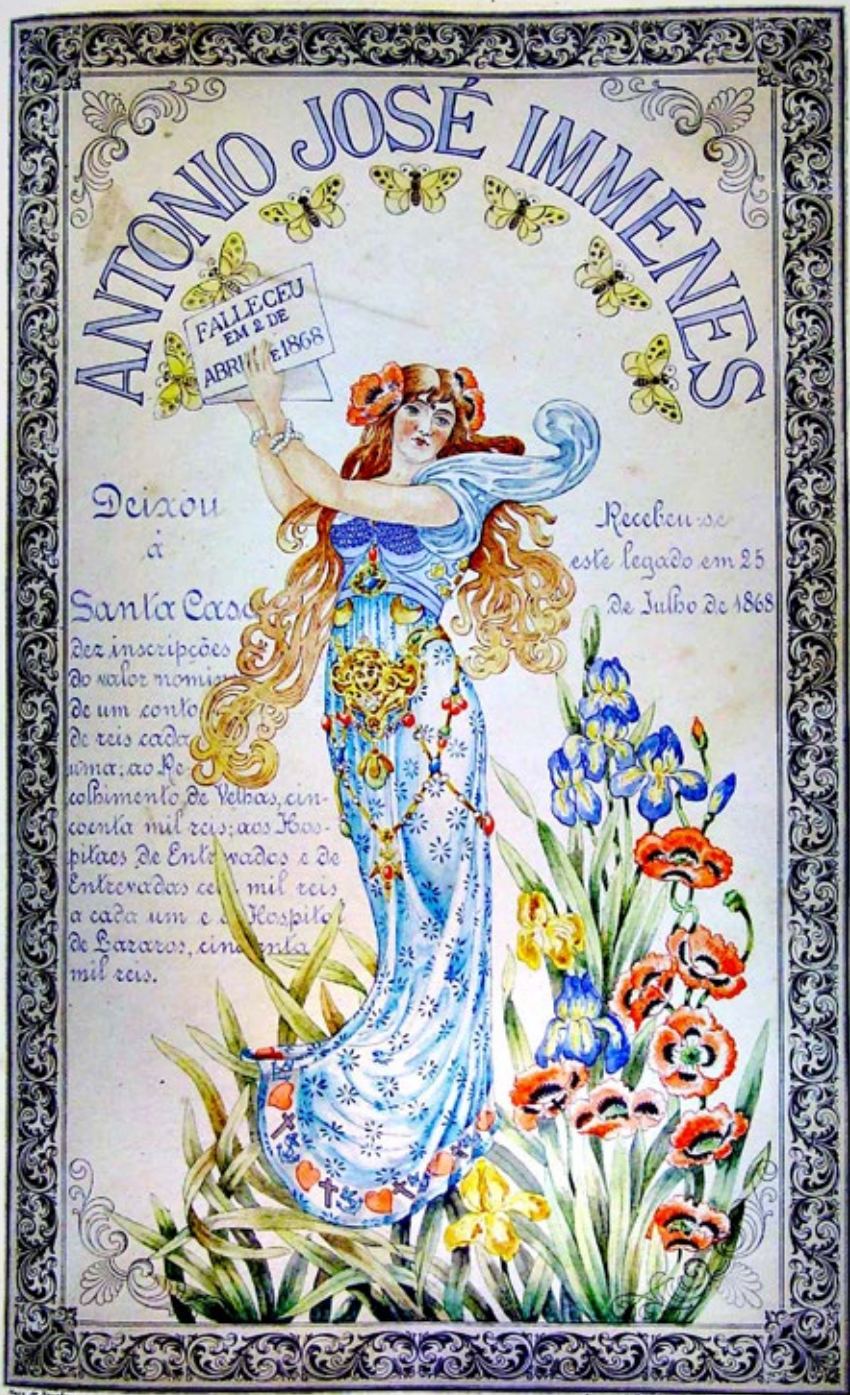 ANTONIO JOSÉ IMMÉNES
FALLECEU
EM 2 DE
ABRI E 1868
Deixou
á
Santa Casa
dez inscripções
do valor nomin
de um conto
de reis cada
uma; ao Re
colhimento de Velhas, cin-
coenta mil reis; aos Hos-
pitaes de Entrevados e de
Entrevadas ce mil reis
a cada um e Hospital
de Lazaros, cincoenta
mil reis.
Recebeu-se
este legado em 25
de Julho de 1868